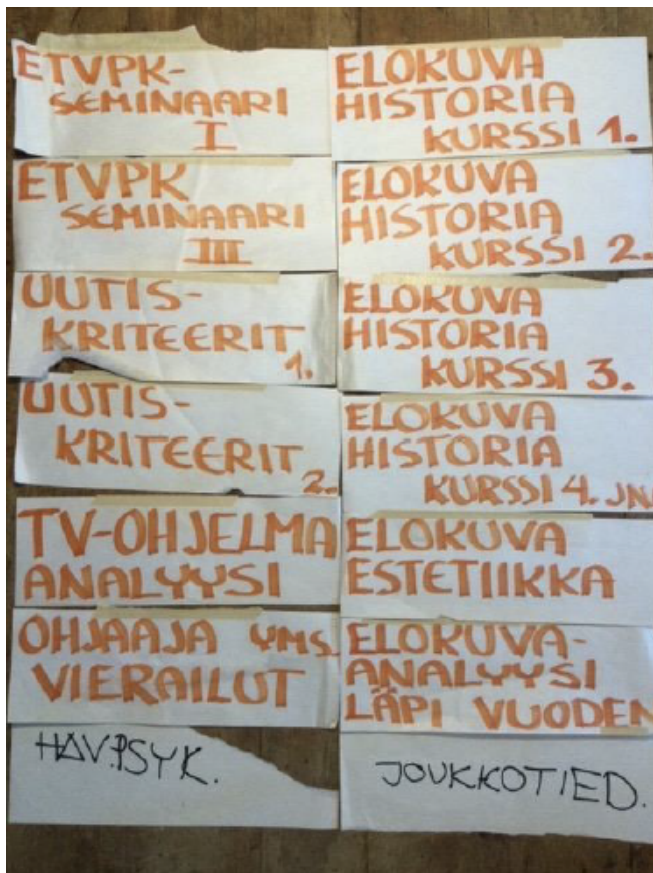 ETVPK-
SEMINAARI
I
ETVPK
SEMINAARI
III
UUTIS-
KRITEERIT
1.
UUTIS-
KRITEERIT
2.
TV-OHJELMA
ANALYYSI
OHJAAJA YMS.
VIERAILUT
HAV.PSYK.
ELOKUVA
HISTORIA
KURSSI 1.
ELOKUVA
HISTORIA
KURSSI 2.
ELOKUVA
HISTORIA
KURSSI 3.
ELOKUVA
HISTORIA
KURSSI 4. JNE
ELOKUVA
ESTETIIKKA
ELOKUVA-
ANALYYSI
LÄPI VUODEN
JOUKKOTIED.